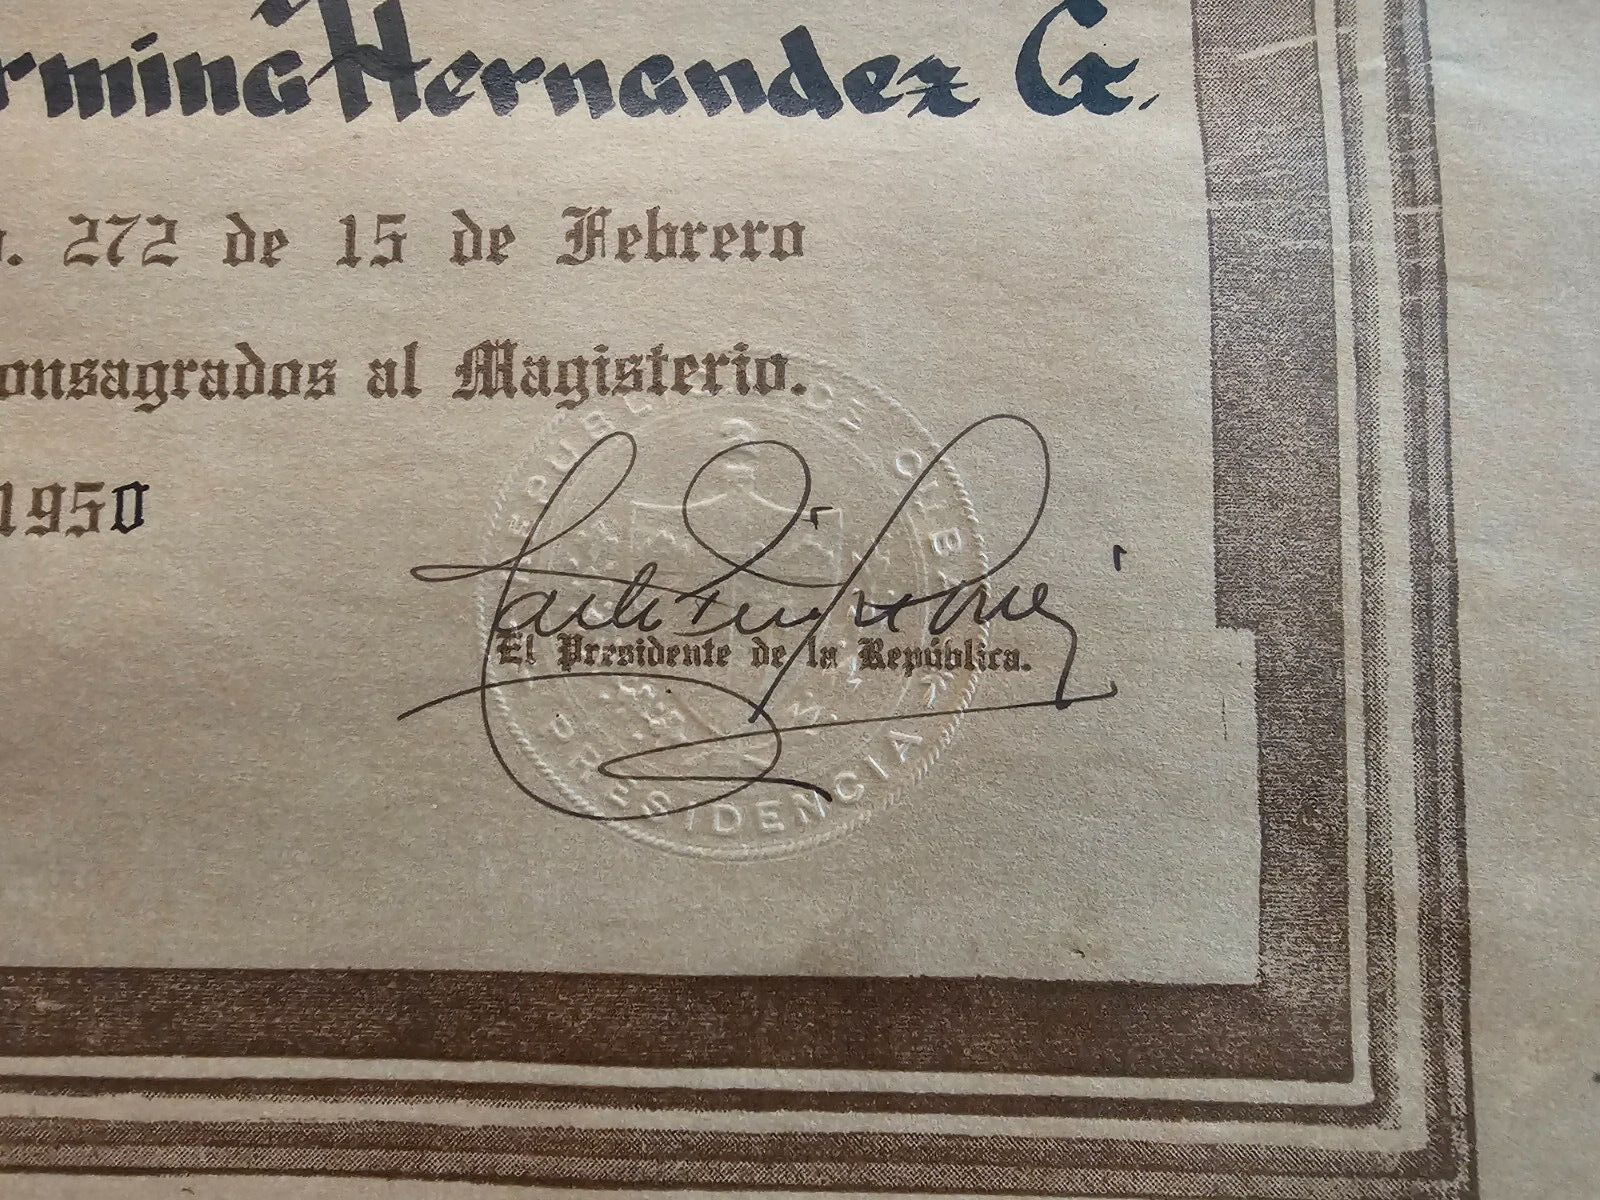 rmina Hernandez G.
o. 272 de 15 de Febrero
onsagrados al Magisterio.
1950
REPUBLICA DE CUBA
Carlos Prío Socarrás
El Presidente de la República.
PRESIDENCIA